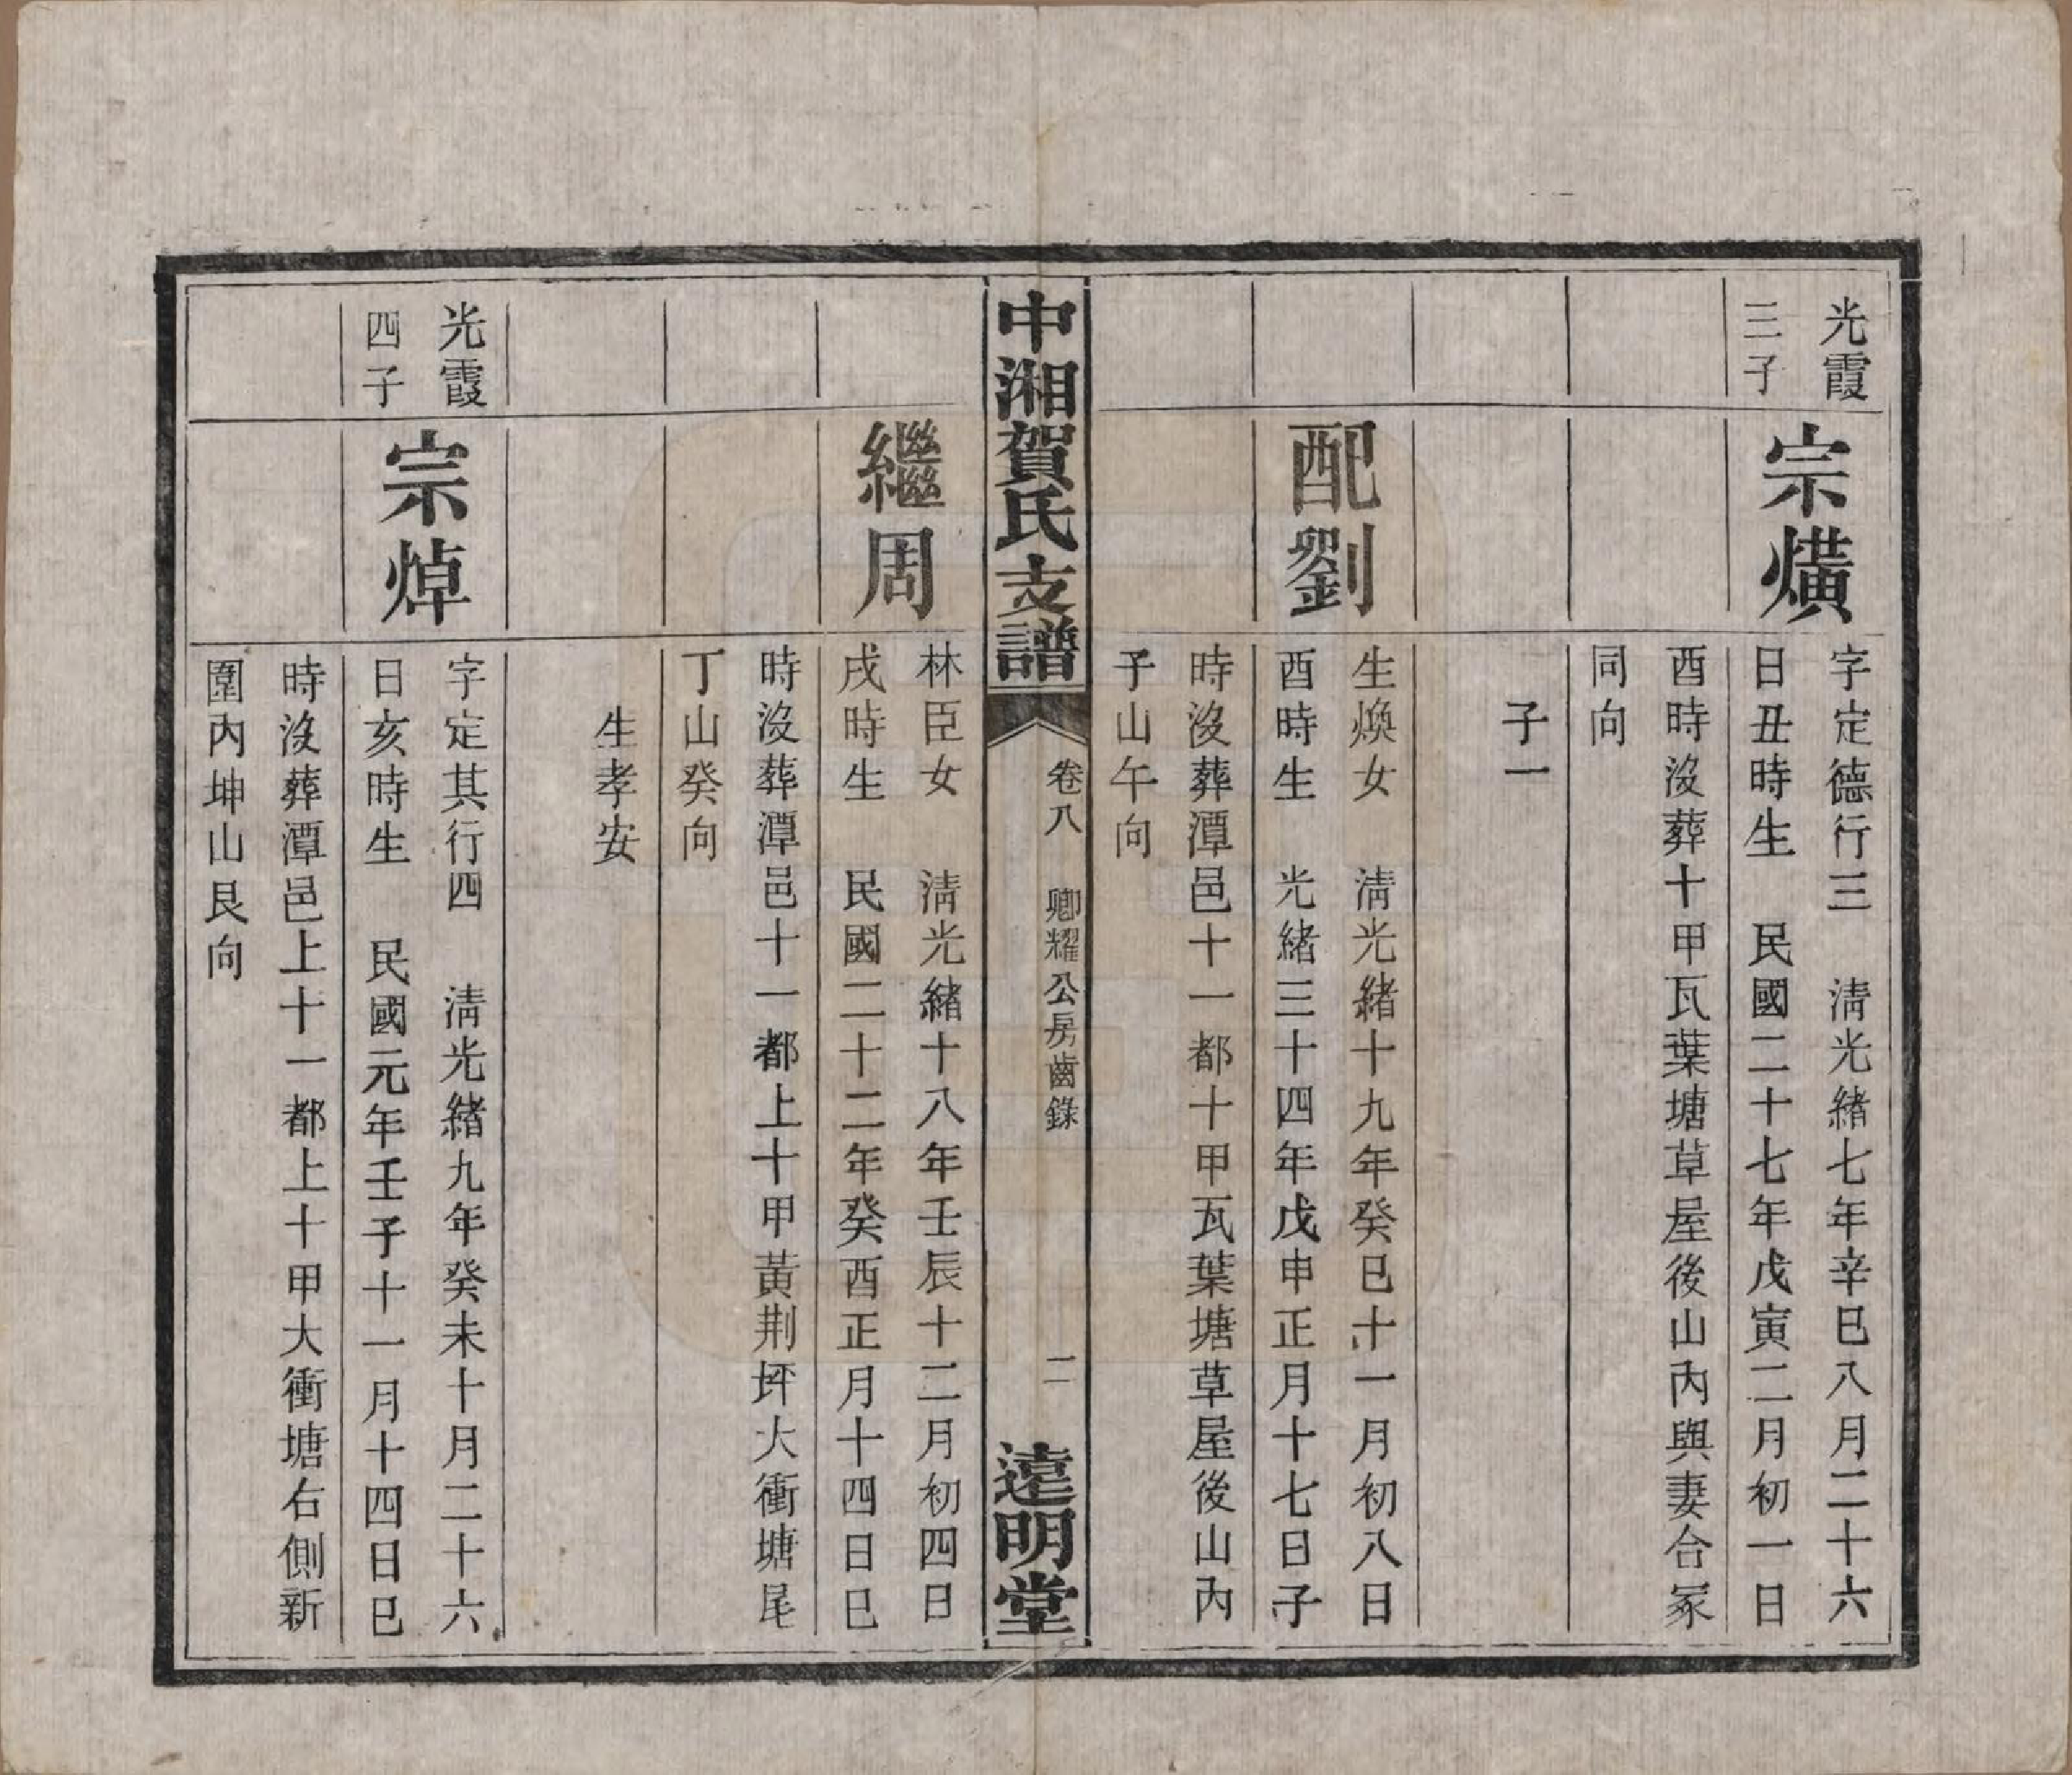 光霞
三子
宗熿
字定德行三　清光緒七年辛巳八月二十六
日丑時生　民國二十七年戊寅二月初一日
酉時沒葬十甲瓦葉塘草屋後山內與妻合冢
同向
子一
配劉
生煥女　清光緒十九年癸巳十一月初八日
酉時生　光緒三十四年戊申正月十七日子
時沒葬潭邑十一都十甲瓦葉塘草屋後山內
子山午向
中湘賀氏支譜
卷八　卿耀公房齒錄
二
遠明堂
繼周
林臣女　清光緒十八年壬辰十二月初四日
戌時生　民國二十二年癸酉正月十四日巳
時沒葬潭邑十一都上十甲黃荆坪大衝塘尾
丁山癸向
生孝安
光霞
四子
宗焯
字定其行四　清光緒九年癸未十月二十六
日亥時生　民國元年壬子十一月十四日巳
時沒葬潭邑上十一都上十甲大衝塘右側新
圍內坤山艮向